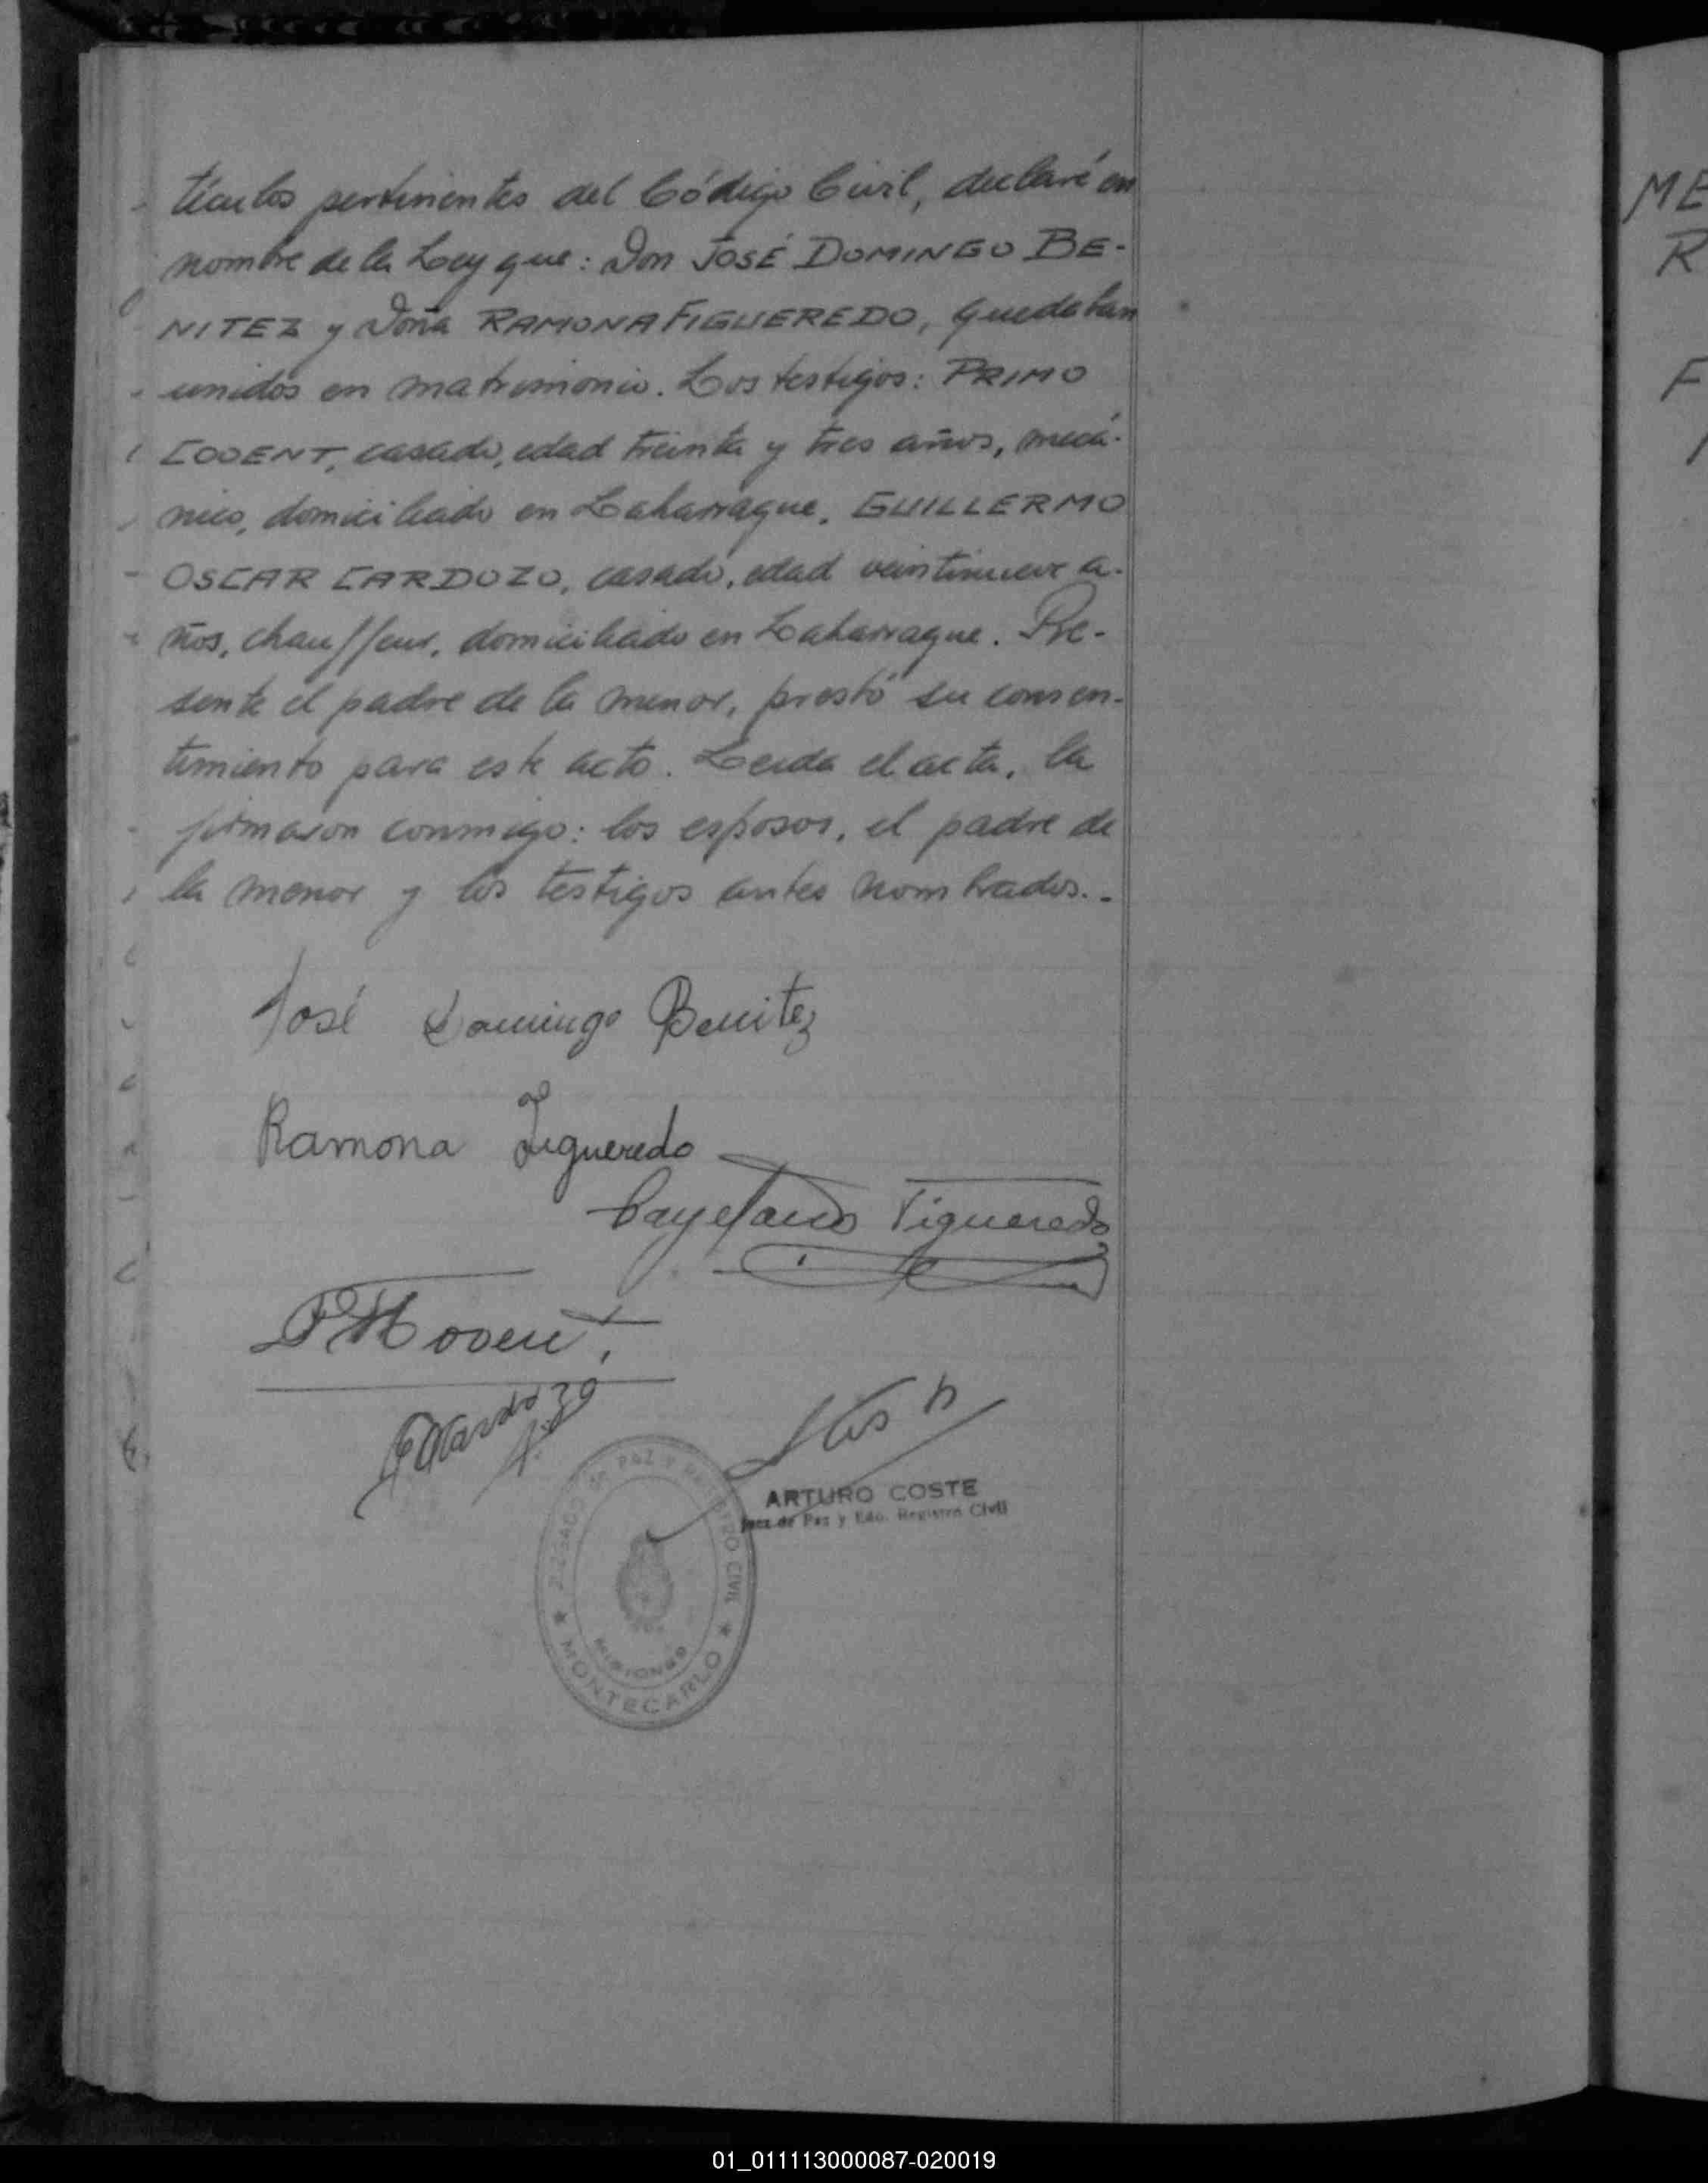 tículos pertinentes del Código Civil, declaré en
nombre de la Ley que: Don JOSÉ DOMINGO BE-
NITEZ y Doña RAMONA FIGUEREDO, quedaban
unidos en matrimonio. Los testigos: PRIMO
COOENT, casado, edad treinta y tres años, mecá-
nico, domiciliado en Laharrague. GUILLERMO
OSCAR CARDOZO, casado, edad veintinueve a-
ños, chauffeur, domiciliado en Laharrague. Pre-
sente el padre de la menor, prestó su consen-
timiento para este acto. Leída el acta, la
firmaron conmigo: los esposos, el padre de
la menor y los testigos antes nombrados.-
José Domingo Benitez
Ramona Figueredo
Cayetano Figueredo
ARTURO COSTE
Juez de Paz y Edo. Registro Civil
JUZGADO de PAZ Y REGISTRO CIVIL
MISIONES
★ MONTECARLO ★
ME
R
F
01_011113000087-020019